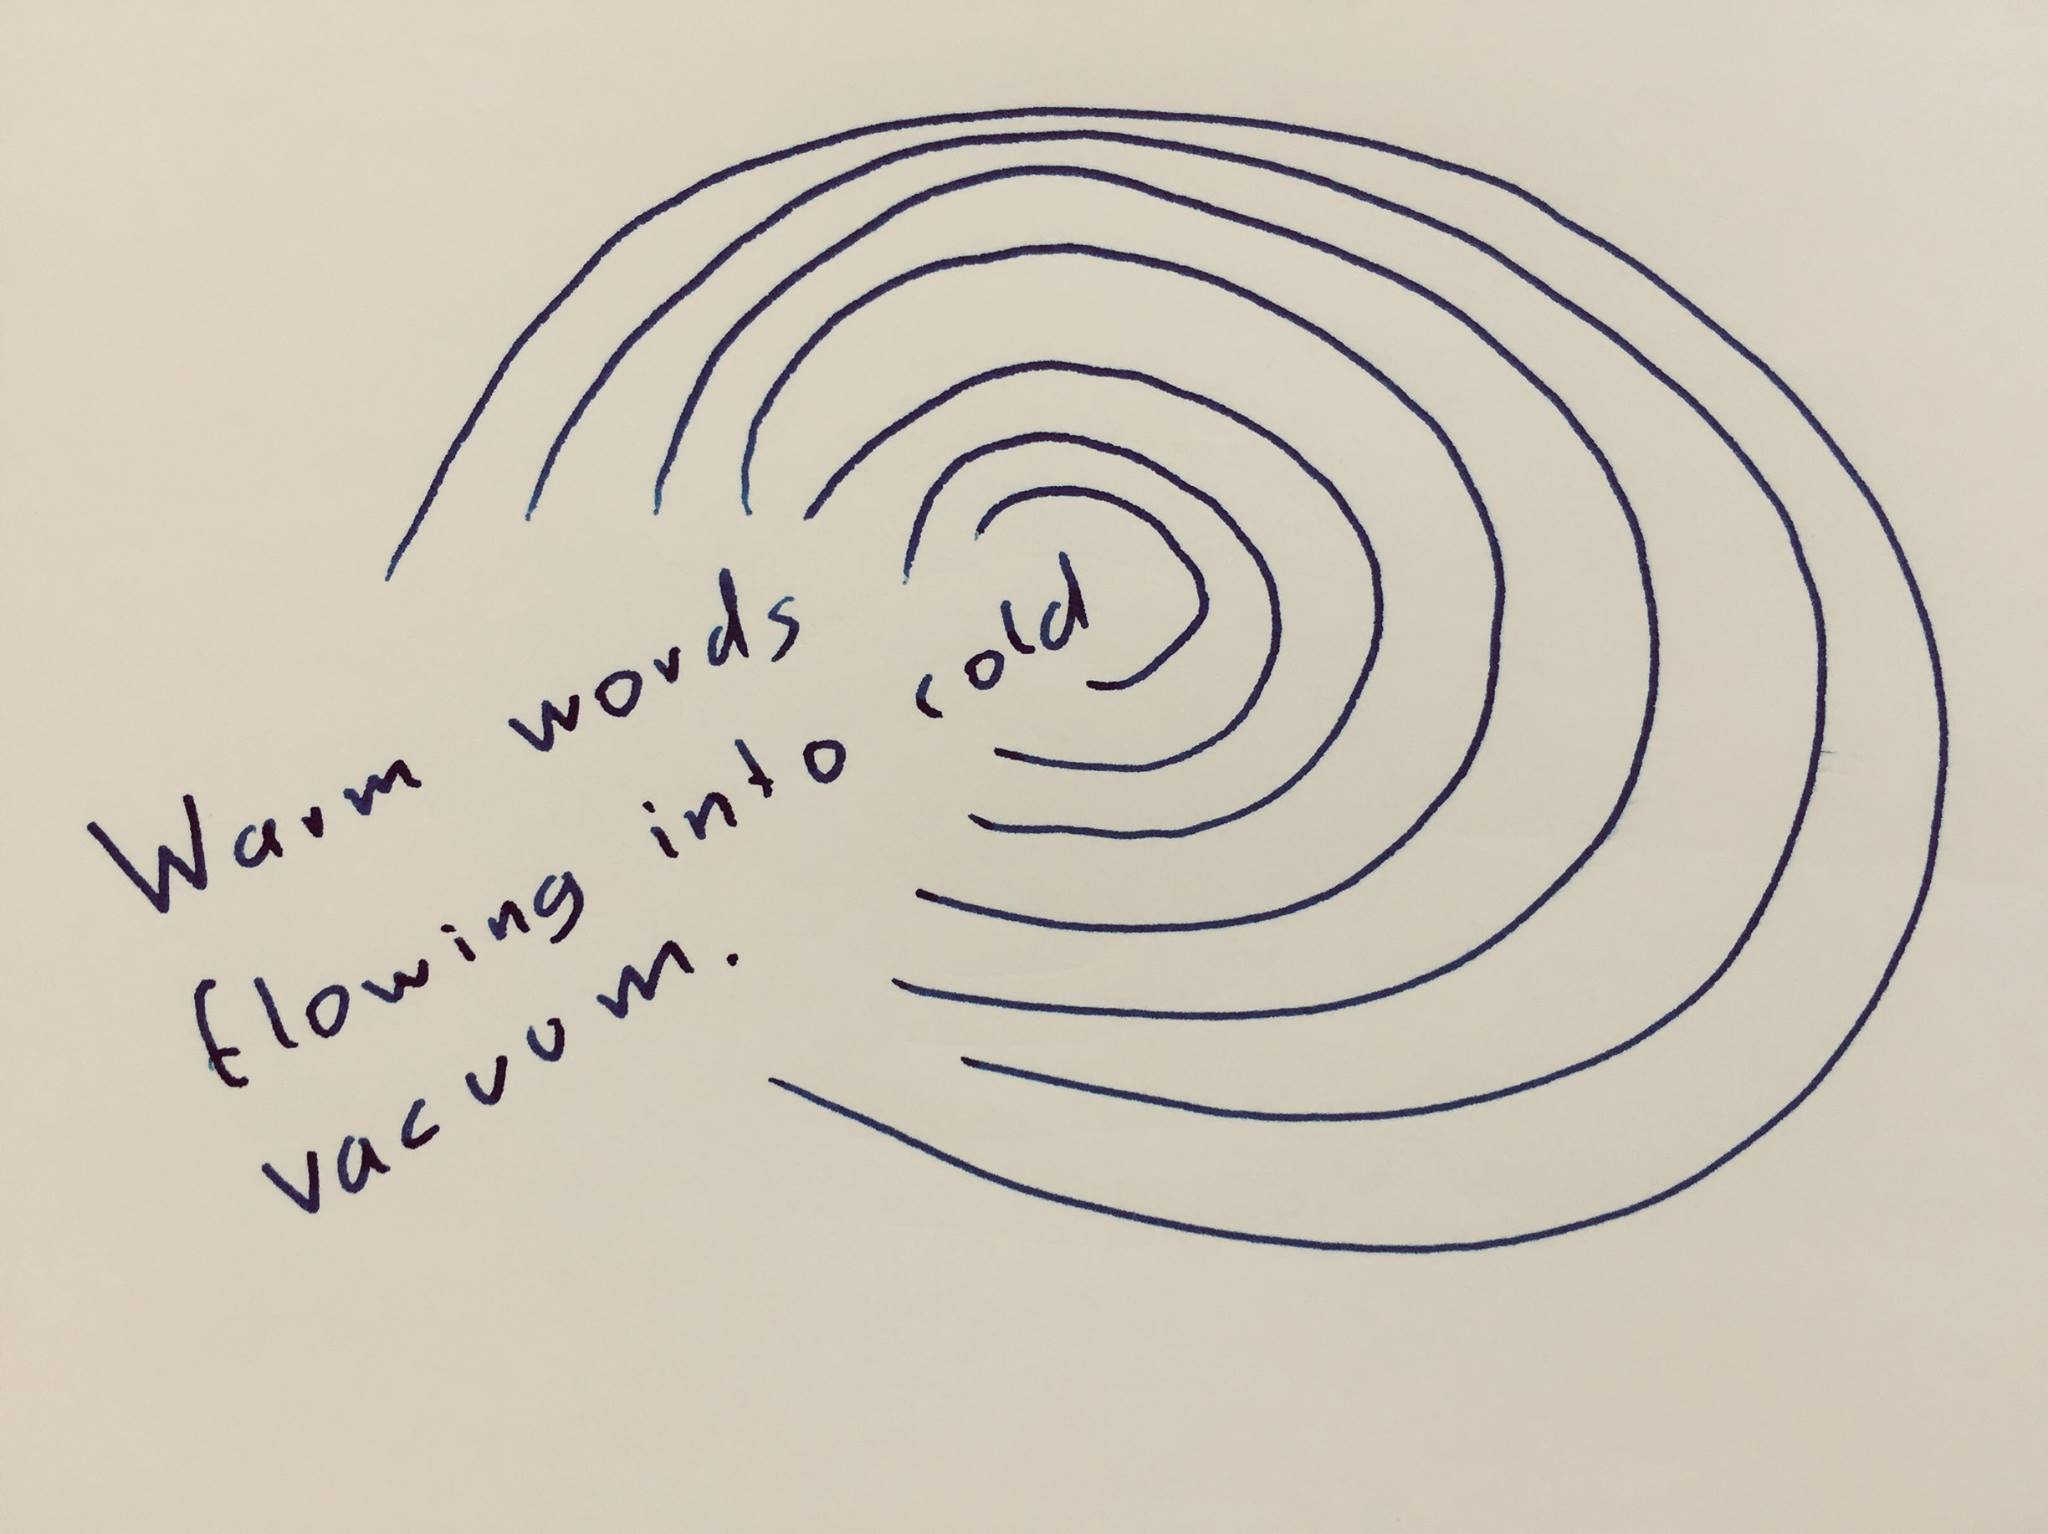 Warm words
flowing into cold
vacuum.